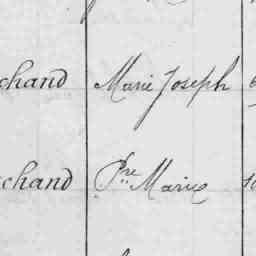 chand Marie Joseph
chand Pre Marie